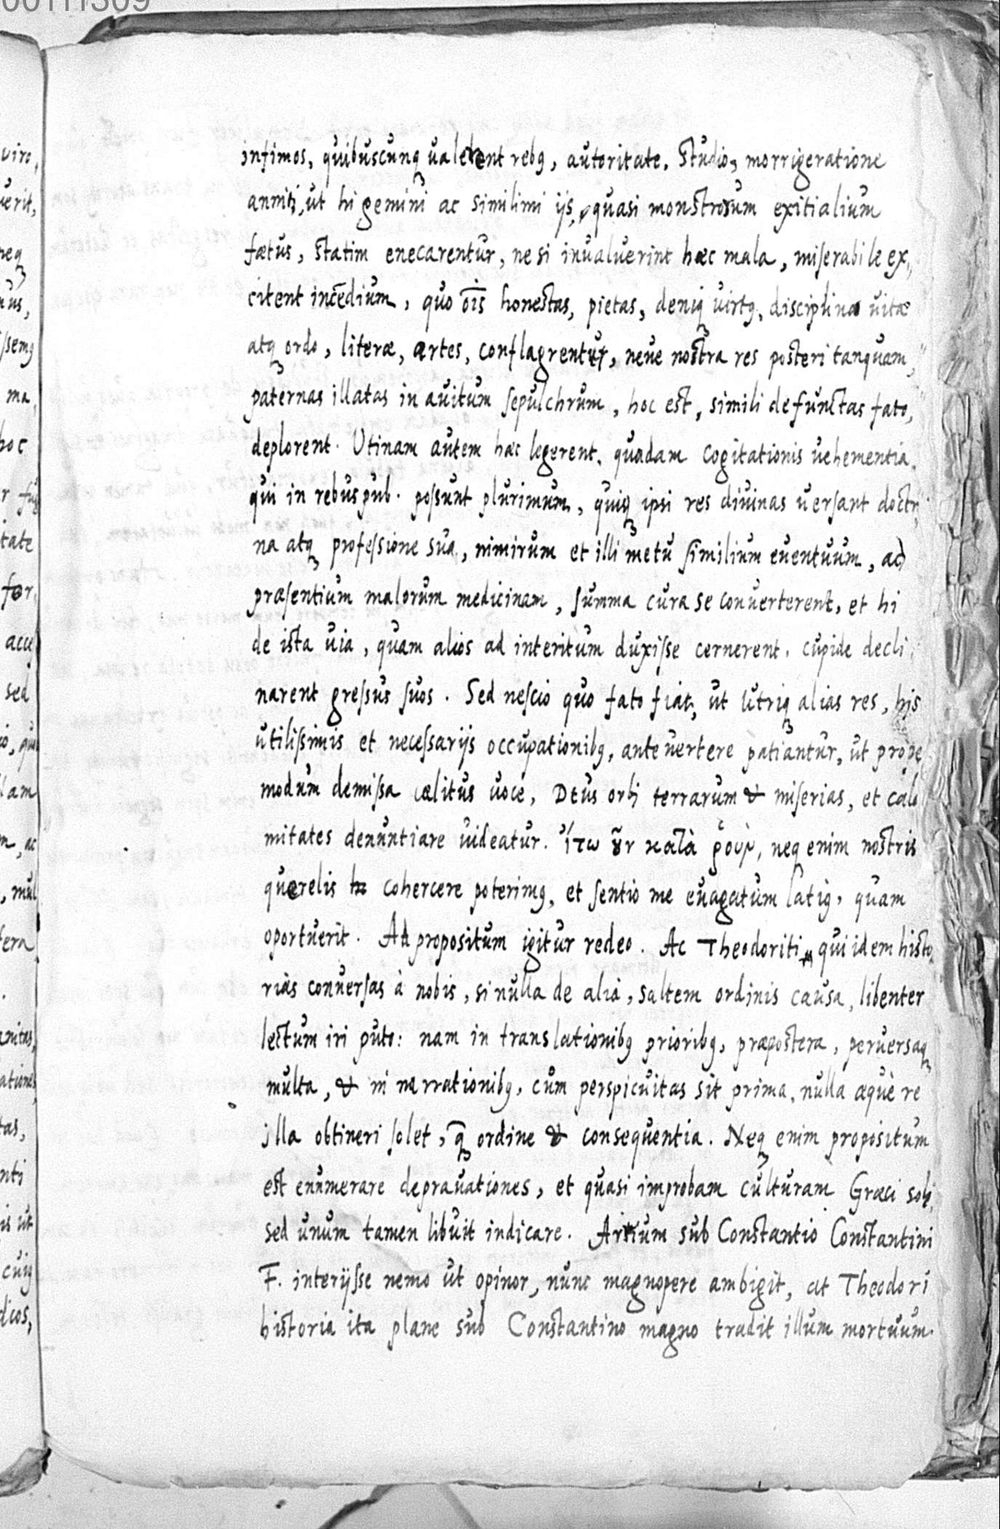 00111309
infimos, quibuscunq; ualerent rebq, autoritate, studio, morrigeratione
anniti, ut hi gemini ac simillimi ijs, quasi monstrorum exitialium
fætus, statim enecarentur, ne si inualuerint hæc mala, miserabile ex,
citent incēdium, quo ōis honestas, pietas, deniq; uirtq, disciplina uitæ
atq; ordo, literæ, artes, conflagrentur, neue nostra res posteri tanquam
paternas illatas in auitum sepulchrum, hoc est, simili defunctas fato,
deplorent. Utinam autem hæc legerent, quadam cogitationis uehementia,
qui in rebus pub. possunt plurimum, quiq; ipsi res diuinas uersant doctri
na atq; professione sua, nimirum et illi metu similium euentuum, ad
præsentium malorum medicinam, summa cura se conuerterent, et hi
de ista uia, quam alios ad interitum duxisse cernerent, cupide decli,
narent gressus suos. Sed nescio quo fato fiat, ut utriq; alias res, his
utilissimis et necessarijs occupationibq, anteuertere patiantur, ut prope
modum demissa cælitus uoce, Deus orbi terrarum & miserias, et cala
mitates denuntiare uideatur. ἴτω ȣν κατὰ ῥοῦν, neq; enim nostris
querelis hæ cohercere poterimq, et sentio me euagatum latiq, quam
oportuerit. Ad propositum igitur redeo. Ac Theodoriti qui idem histo
rias conuersas à nobis, si nulla de alia, saltem ordinis causa, libenter
lectum iri puto: nam in translationibq prioribq, præpostera, peruersaq;
multa, & in narrationibq, cum perspicuitas sit prima, nulla æquè re
illa obtineri solet, q̄ ordine & consequentia. Neq; enim propositum
est enumerare deprauationes, et quasi improbam culturam Græci soli,
sed unum tamen libuit indicare. Arium sub Constantio Constantini
F. interijsse nemo ut opinor, nunc magnopere ambigit, at Theodori
historia ita plane sub Constantino magno tradit illum mortuum.